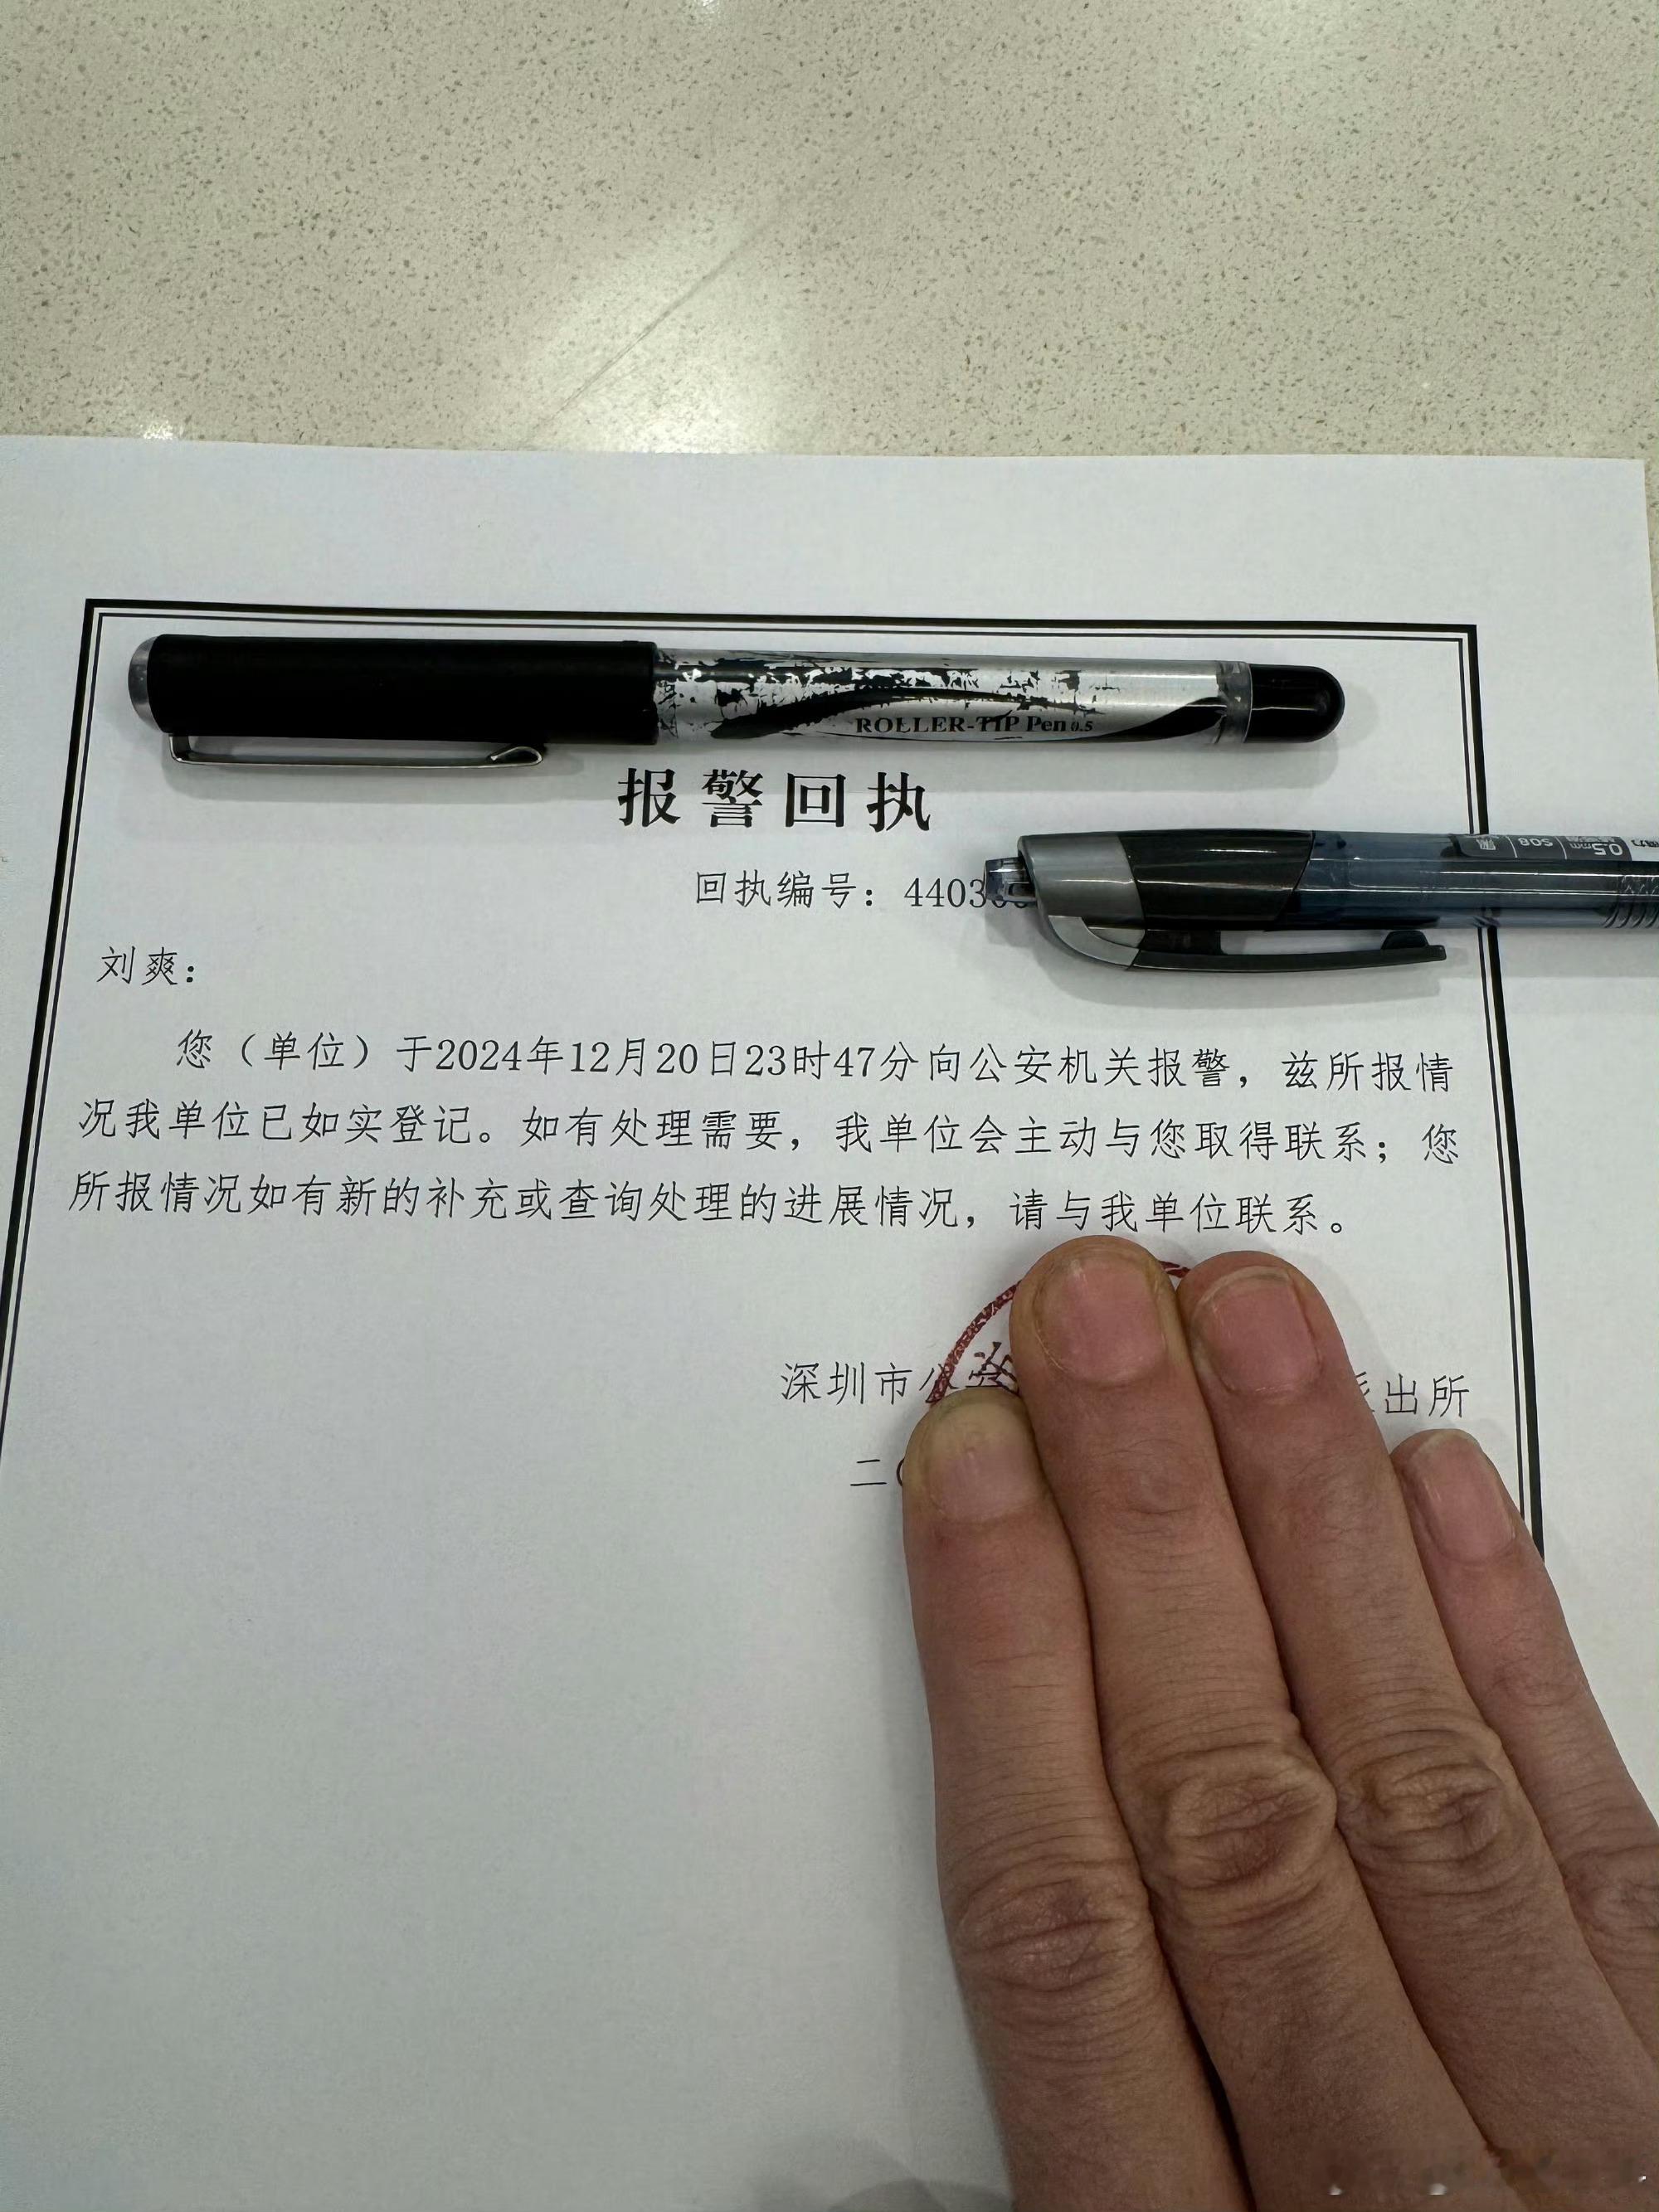 ROLLER-TIP Pen 0.5
报警回执
回执编号：4403
刘爽：
您（单位）于2024年12月20日23时47分向公安机关报警，兹所报情
况我单位已如实登记。如有处理需要，我单位会主动与您取得联系；您
所报情况如有新的补充或查询处理的进展情况，请与我单位联系。
深圳市公安 出所
二
0.5mm
S08